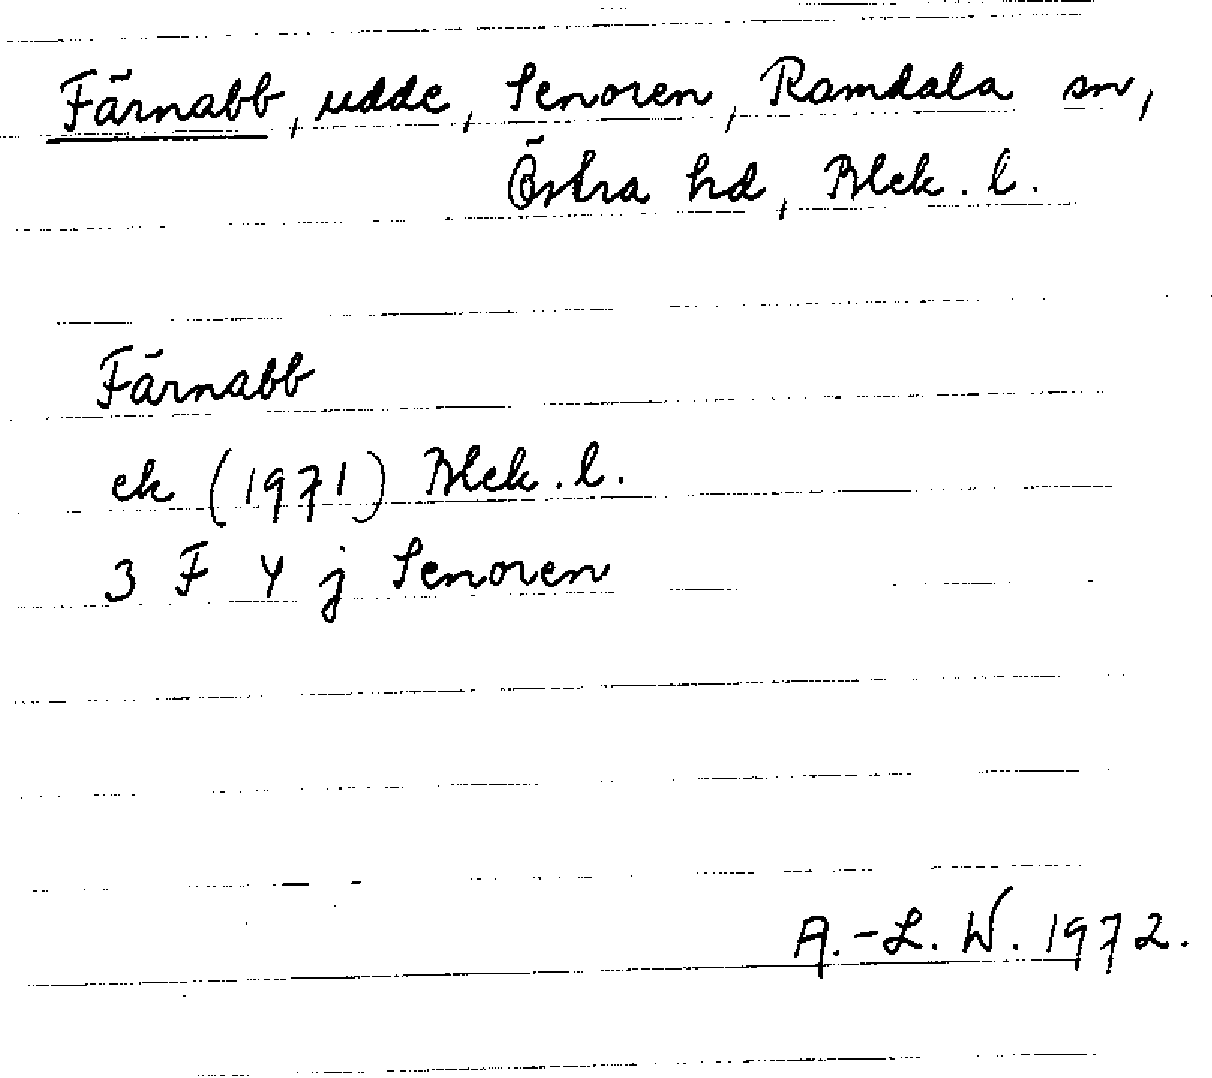 Färnabb, udde, Senoren, Ramdala sn,
Östra hd, Blek. l.
Färnabb
ek (1971) Blek. l.
3 F 4 j Senoren
A.-L. W. 1972.